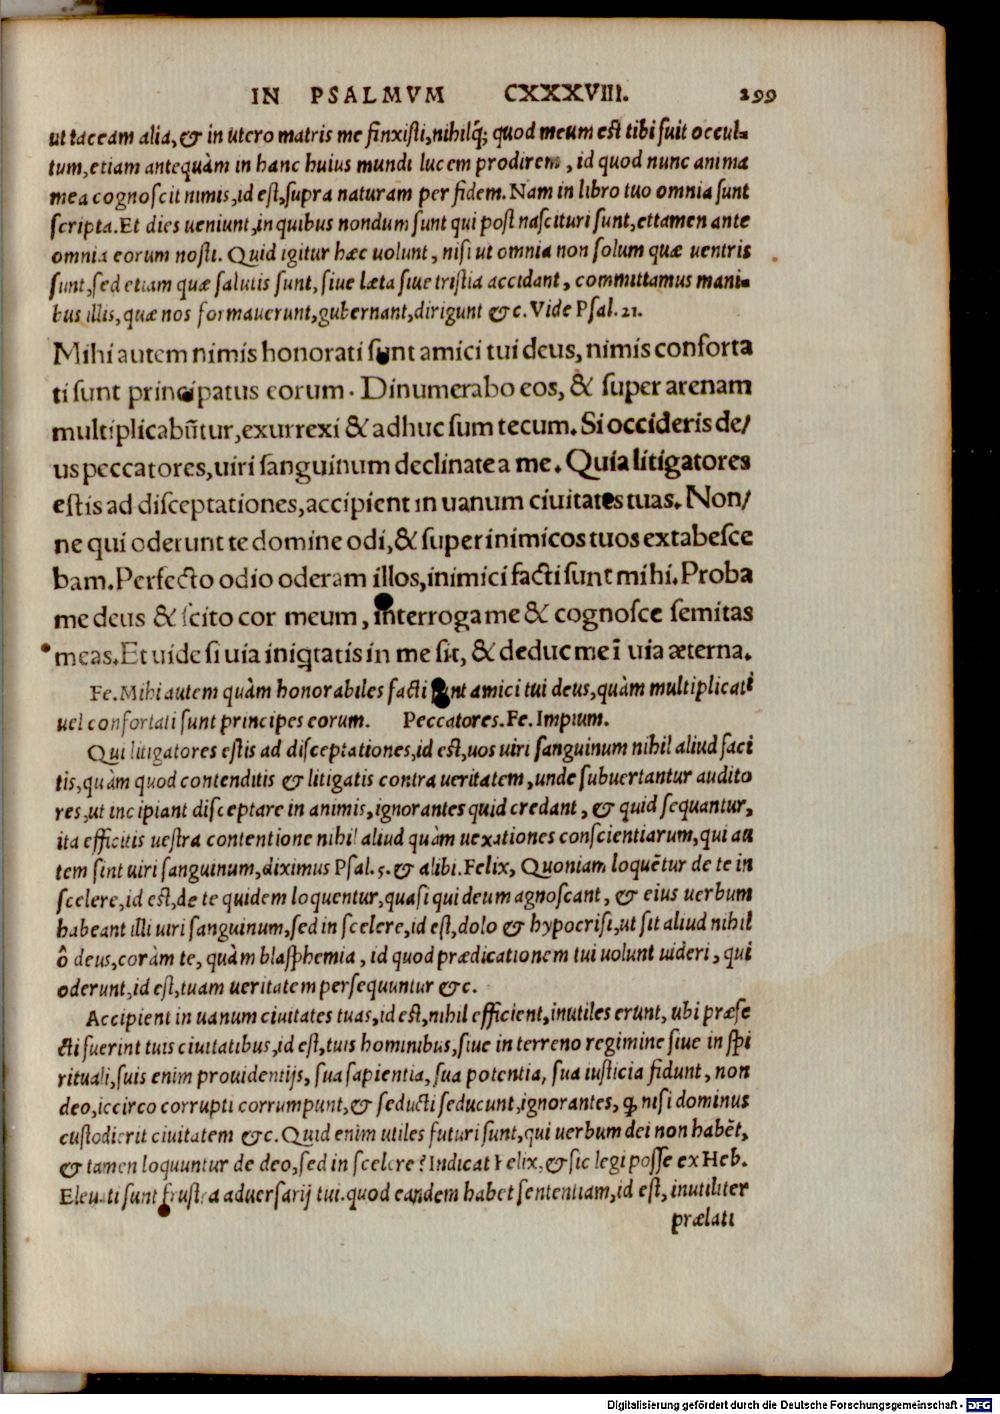 IN PSALMVM CXXXVIII. 299
ut taceam alia, & in utero matris me finxisti, nihilq́; quod meum est tibi fuit occul-
tum, etiam antequàm in hanc huius mundi lucem prodirem, id quod nunc anima
mea cognoscit nimis, id est, supra naturam per fidem. Nam in libro tuo omnia sunt
scripta. Et dies ueniunt, in quibus nondum sunt qui post nascituri sunt, et tamen ante
omnia eorum nosti. Quid igitur hæc uolunt, nisi ut omnia non solum quæ uentris
sunt, sed etiam quæ salutis sunt, siue læta siue tristia accidant, committamus mani-
bus illis, quæ nos formauerunt, gubernant, dirigunt &c. Vide Psal. 21.
Mihi autem nimis honorati sunt amici tui deus, nimis conforta
ti sunt principatus eorum. Dinumerabo eos, & super arenam
multiplicabũtur, exurrexi & adhuc sum tecum. Si occideris de/
us peccatores, uiri sanguinum declinate a me. Quia litigatores
estis ad disceptationes, accipient in uanum ciuitates tuas. Non/
ne qui oderunt te domine odi, & super inimicos tuos extabesce
bam. Perfecto odio oderam illos, inimici facti sunt mihi. Proba
me deus & scito cor meum, interroga me & cognosce semitas
meas. Et uide si uia iniqtatis in me sit, & deduc me ĩ uia æterna.
Fe. Mihi autem quàm honorabiles facti sunt amici tui deus, quàm multiplicati
uel confortati sunt principes eorum. Peccatores. Fe. Impium.
Qui litigatores estis ad disceptationes, id est, uos uiri sanguinum nihil aliud faci
tis, quàm quod contenditis & litigatis contra ueritatem, unde subuertantur audito
res, ut incipiant disceptare in animis, ignorantes quid credant, & quid sequantur,
ita efficitis uestra contentione nihil aliud quàm uexationes conscientiarum, qui au
tem sint uiri sanguinum, diximus Psal. 5. & alibi. Felix, Quoniam loquẽtur de te in
scelere, id est, de te quidem loquentur, quasi qui deum agnoscant, & eius uerbum
habeant illi uiri sanguinum, sed in scelere, id est, dolo & hypocrisi, ut sit aliud nihil
ô deus, coràm te, quàm blasphemia, id quod prædicationem tui uolunt uideri, qui
oderunt, id est, tuam ueritatem persequuntur &c.
Accipient in uanum ciuitates tuas, id est, nihil efficient, inutiles erunt, ubi præfe
cti fuerint tuis ciuitatibus, id est, tuis hominibus, siue in terreno regimine siue in spi
rituali, suis enim prouidentijs, sua sapientia, sua potentia, sua iusticia fidunt, non
deo, iccirco corrupti corrumpunt, & seducti seducunt, ignorantes, ꝙ nisi dominus
custodierit ciuitatem &c. Quid enim utiles futuri sunt, qui uerbum dei non habẽt,
& tamen loquuntur de deo, sed in scelere? Indicat Felix, & sic legi posse ex Heb.
Eleuati sunt frustra aduersarij tui. quod eandem habet sententiam, id est, inutiliter
prælati
Digitalisierung gefördert durch die Deutsche Forschungsgemeinschaft - DFG